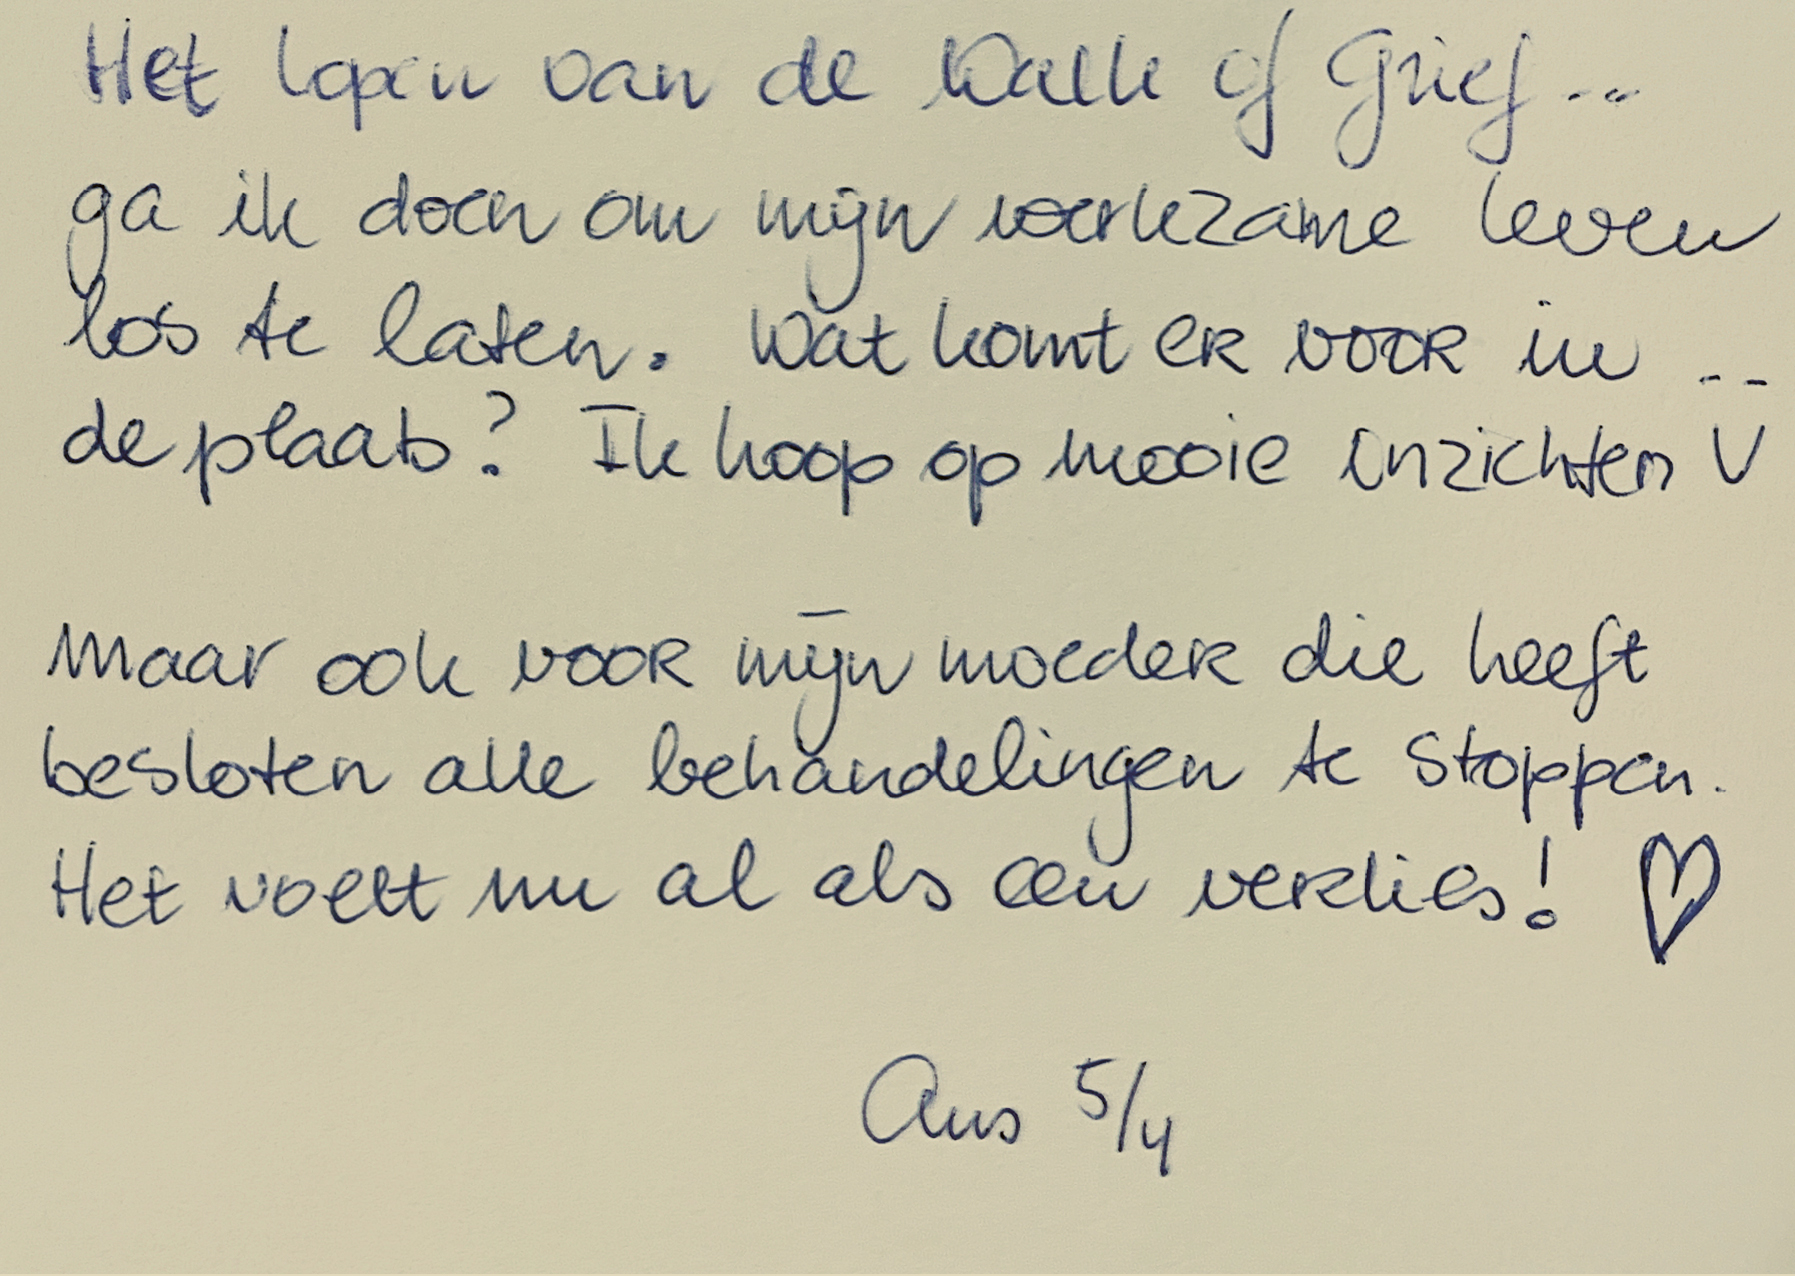 Het lopen van de Walk of Grief...
ga ik doen om mijn werkzame leven
los te laten. Wat komt er voor in
de plaats? Ik hoop op mooie inzichten
Maar ook voor mijn moeder die heeft
besloten alle behandelingen te stoppen.
Het voelt nu al als een verlies! ♡
Ans 5/4